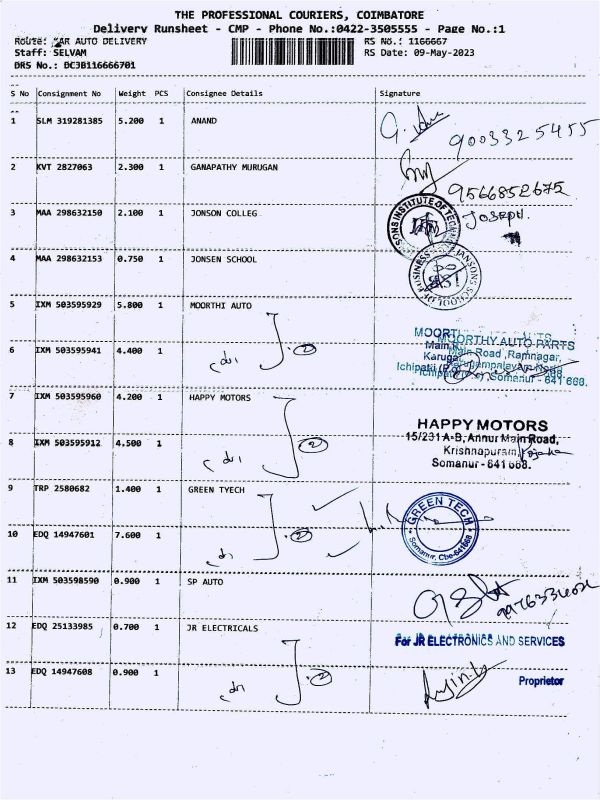 THE PROFESSIONAL COURIERS, COIMBATORE
Delivery Runsheet - CMP - Phone No.:0422-3505555 - Page No.:1
Route: KAR AUTO DELIVERY RS No.: 1166667
Staff: SELVAM RS Date: 09-May-2023
DRS No.: DCJB116666701
S No Consignment No Weight PCS Consignee Details Signature
1 SLM 319281385 5.200 1 ANAND
9003325455
2 KVT 2827063 2.300 1 GANAPATHY MURUGAN
9566852675
3 MAA 298632150 2.100 1 JONSON COLLEG
JOSEPH.
4 MAA 298632153 0.750 1 JONSEN SCHOOL
5 IXM 503595929 5.800 1 MOORTHI AUTO
MOORTHY AUTO PARTS
Main Road, Ramnagar,
6 IXM 503595941 4.400 1
2
Somanur - 641 668.
7 IXM 503595960 4.200 1 HAPPY MOTORS
HAPPY MOTORS
15/231 A-B, Annur Main Road,
8 IXM 503595912 4.500 1
2
Krishnapuram,
Somanur - 641 668.
9 TRP 2580682 1.400 1 GREEN TYECH
GREEN TECH
Somanur, Cbe-641668
10 EDQ 14947601 7.600 1
2
11 IXM 503598590 0.900 1 SP AUTO
12 EDQ 25133985 0.700 1 JR ELECTRICALS
For JR ELECTRONICS AND SERVICES
13 EDQ 14947608 0.900 1
2
Proprietor